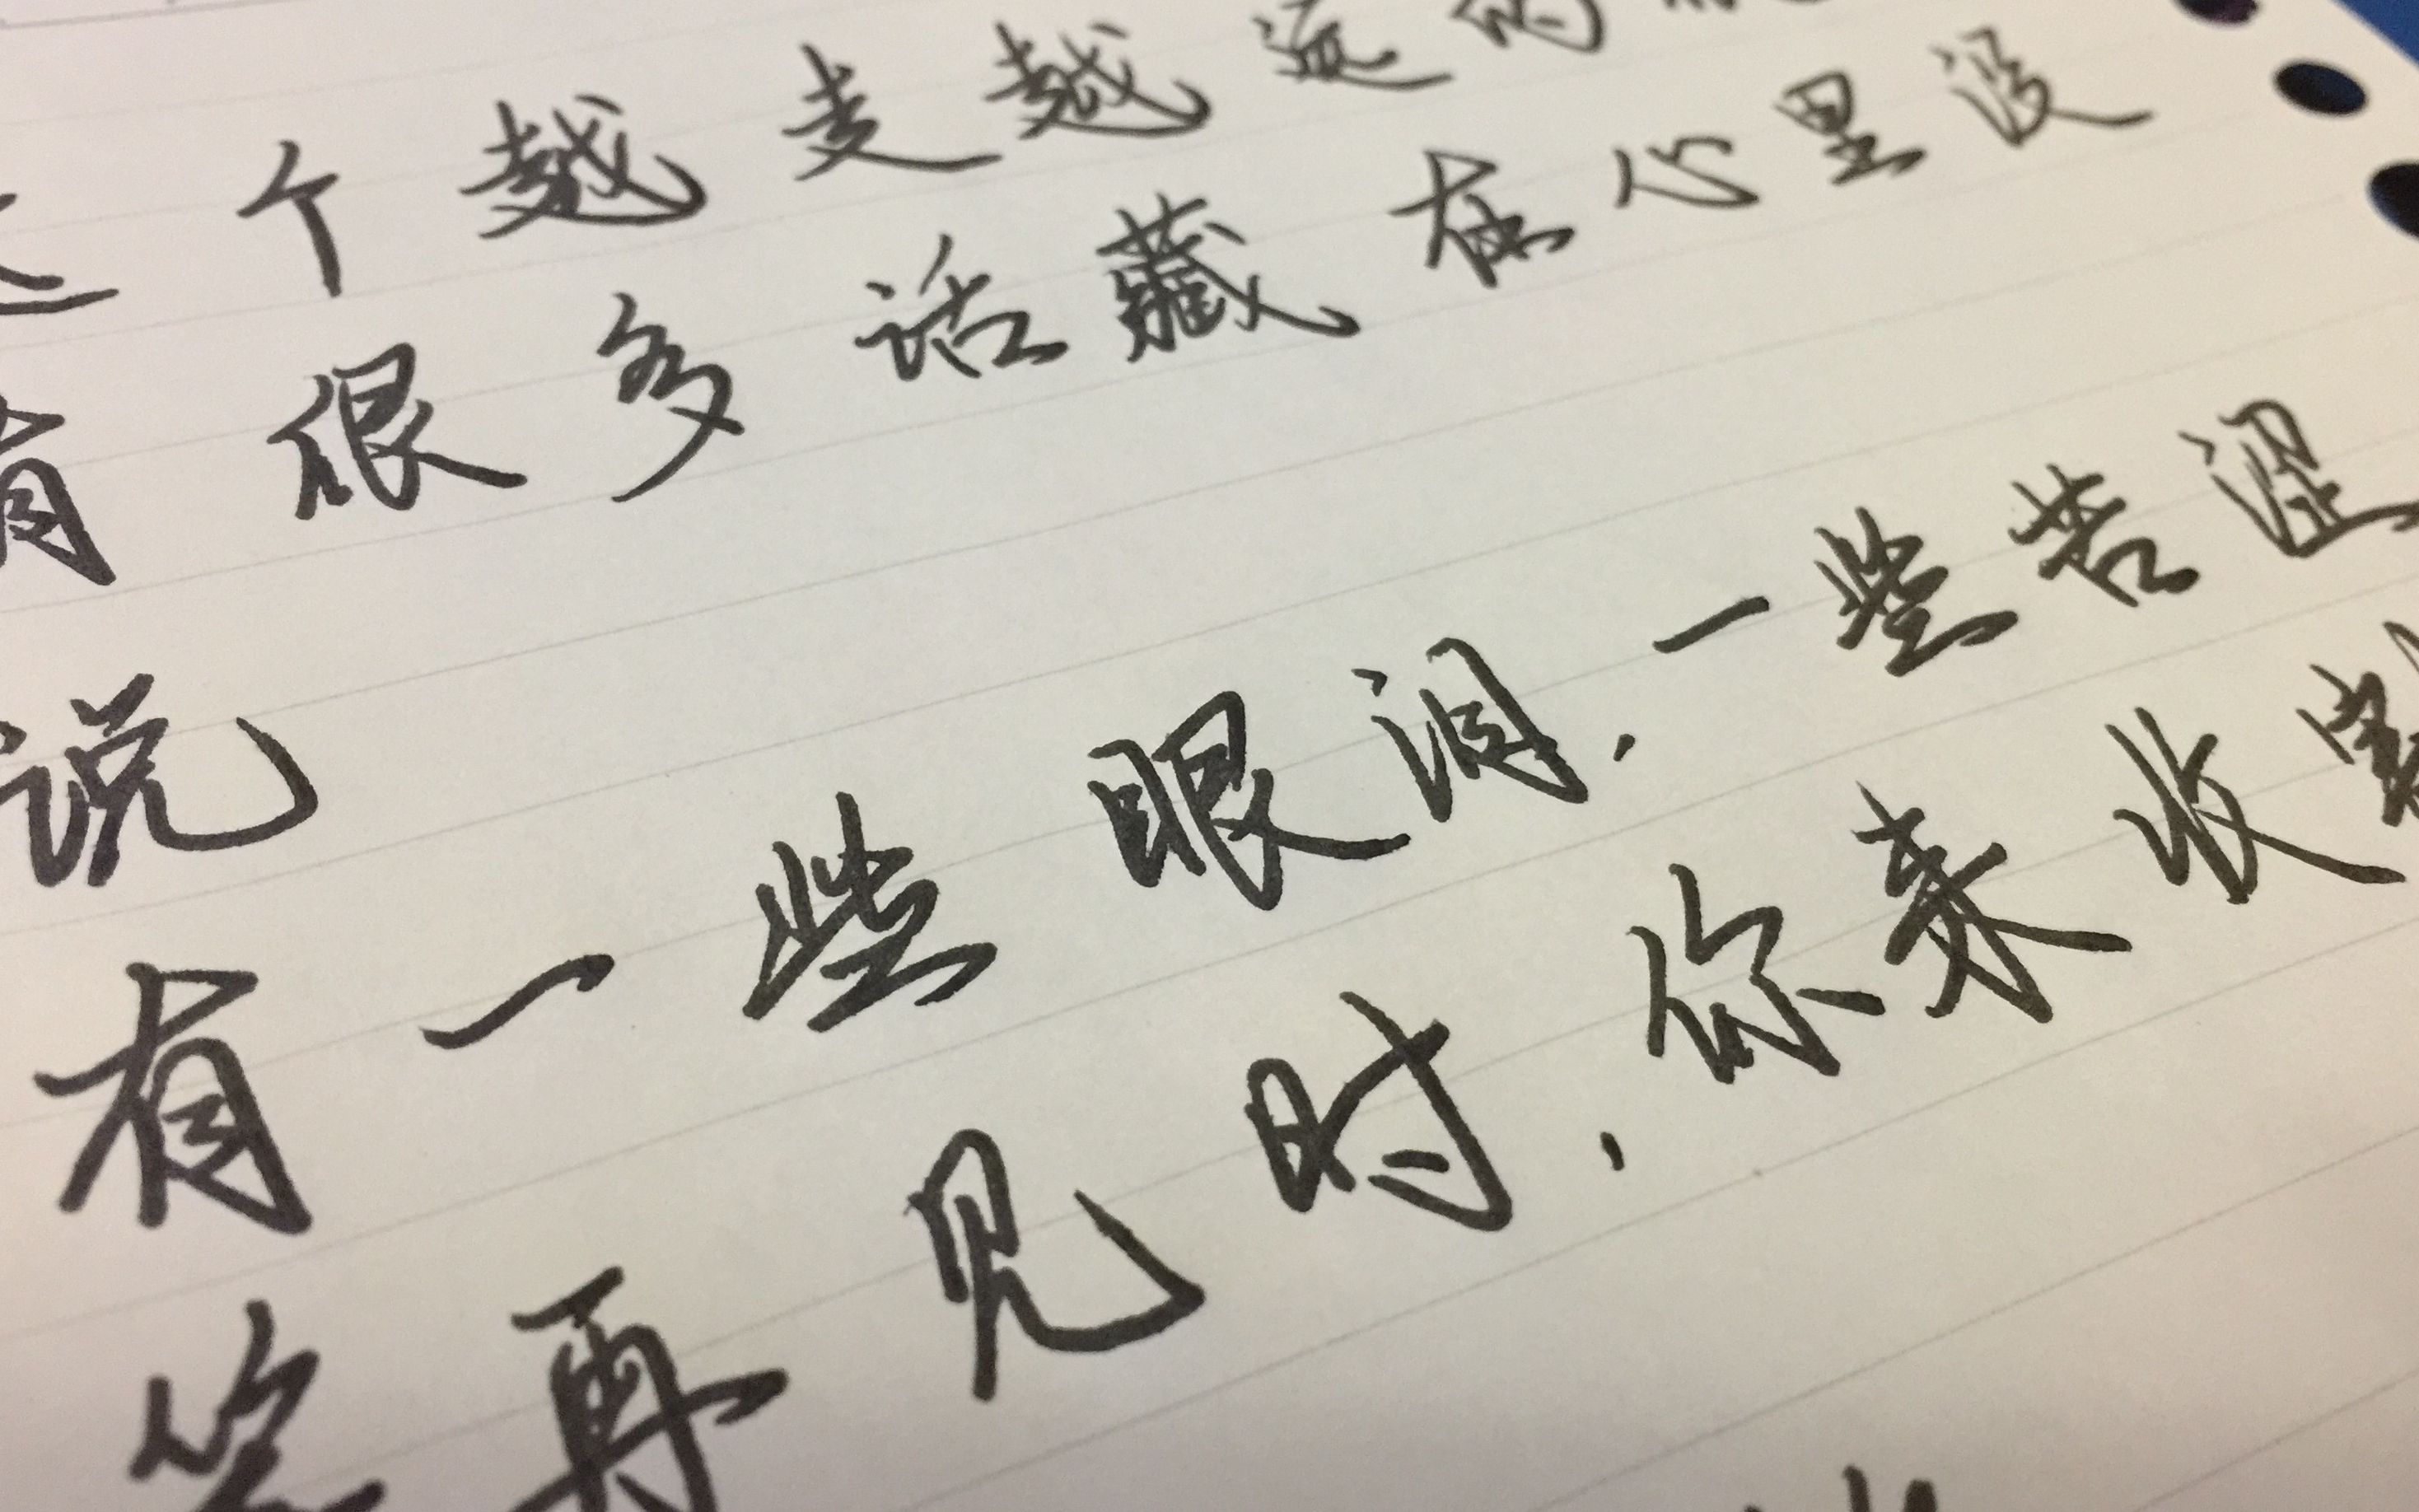 个越走越远的
有很多话藏在心里没
说
有一些眼泪，一些苦涩
等再见时，你来收割